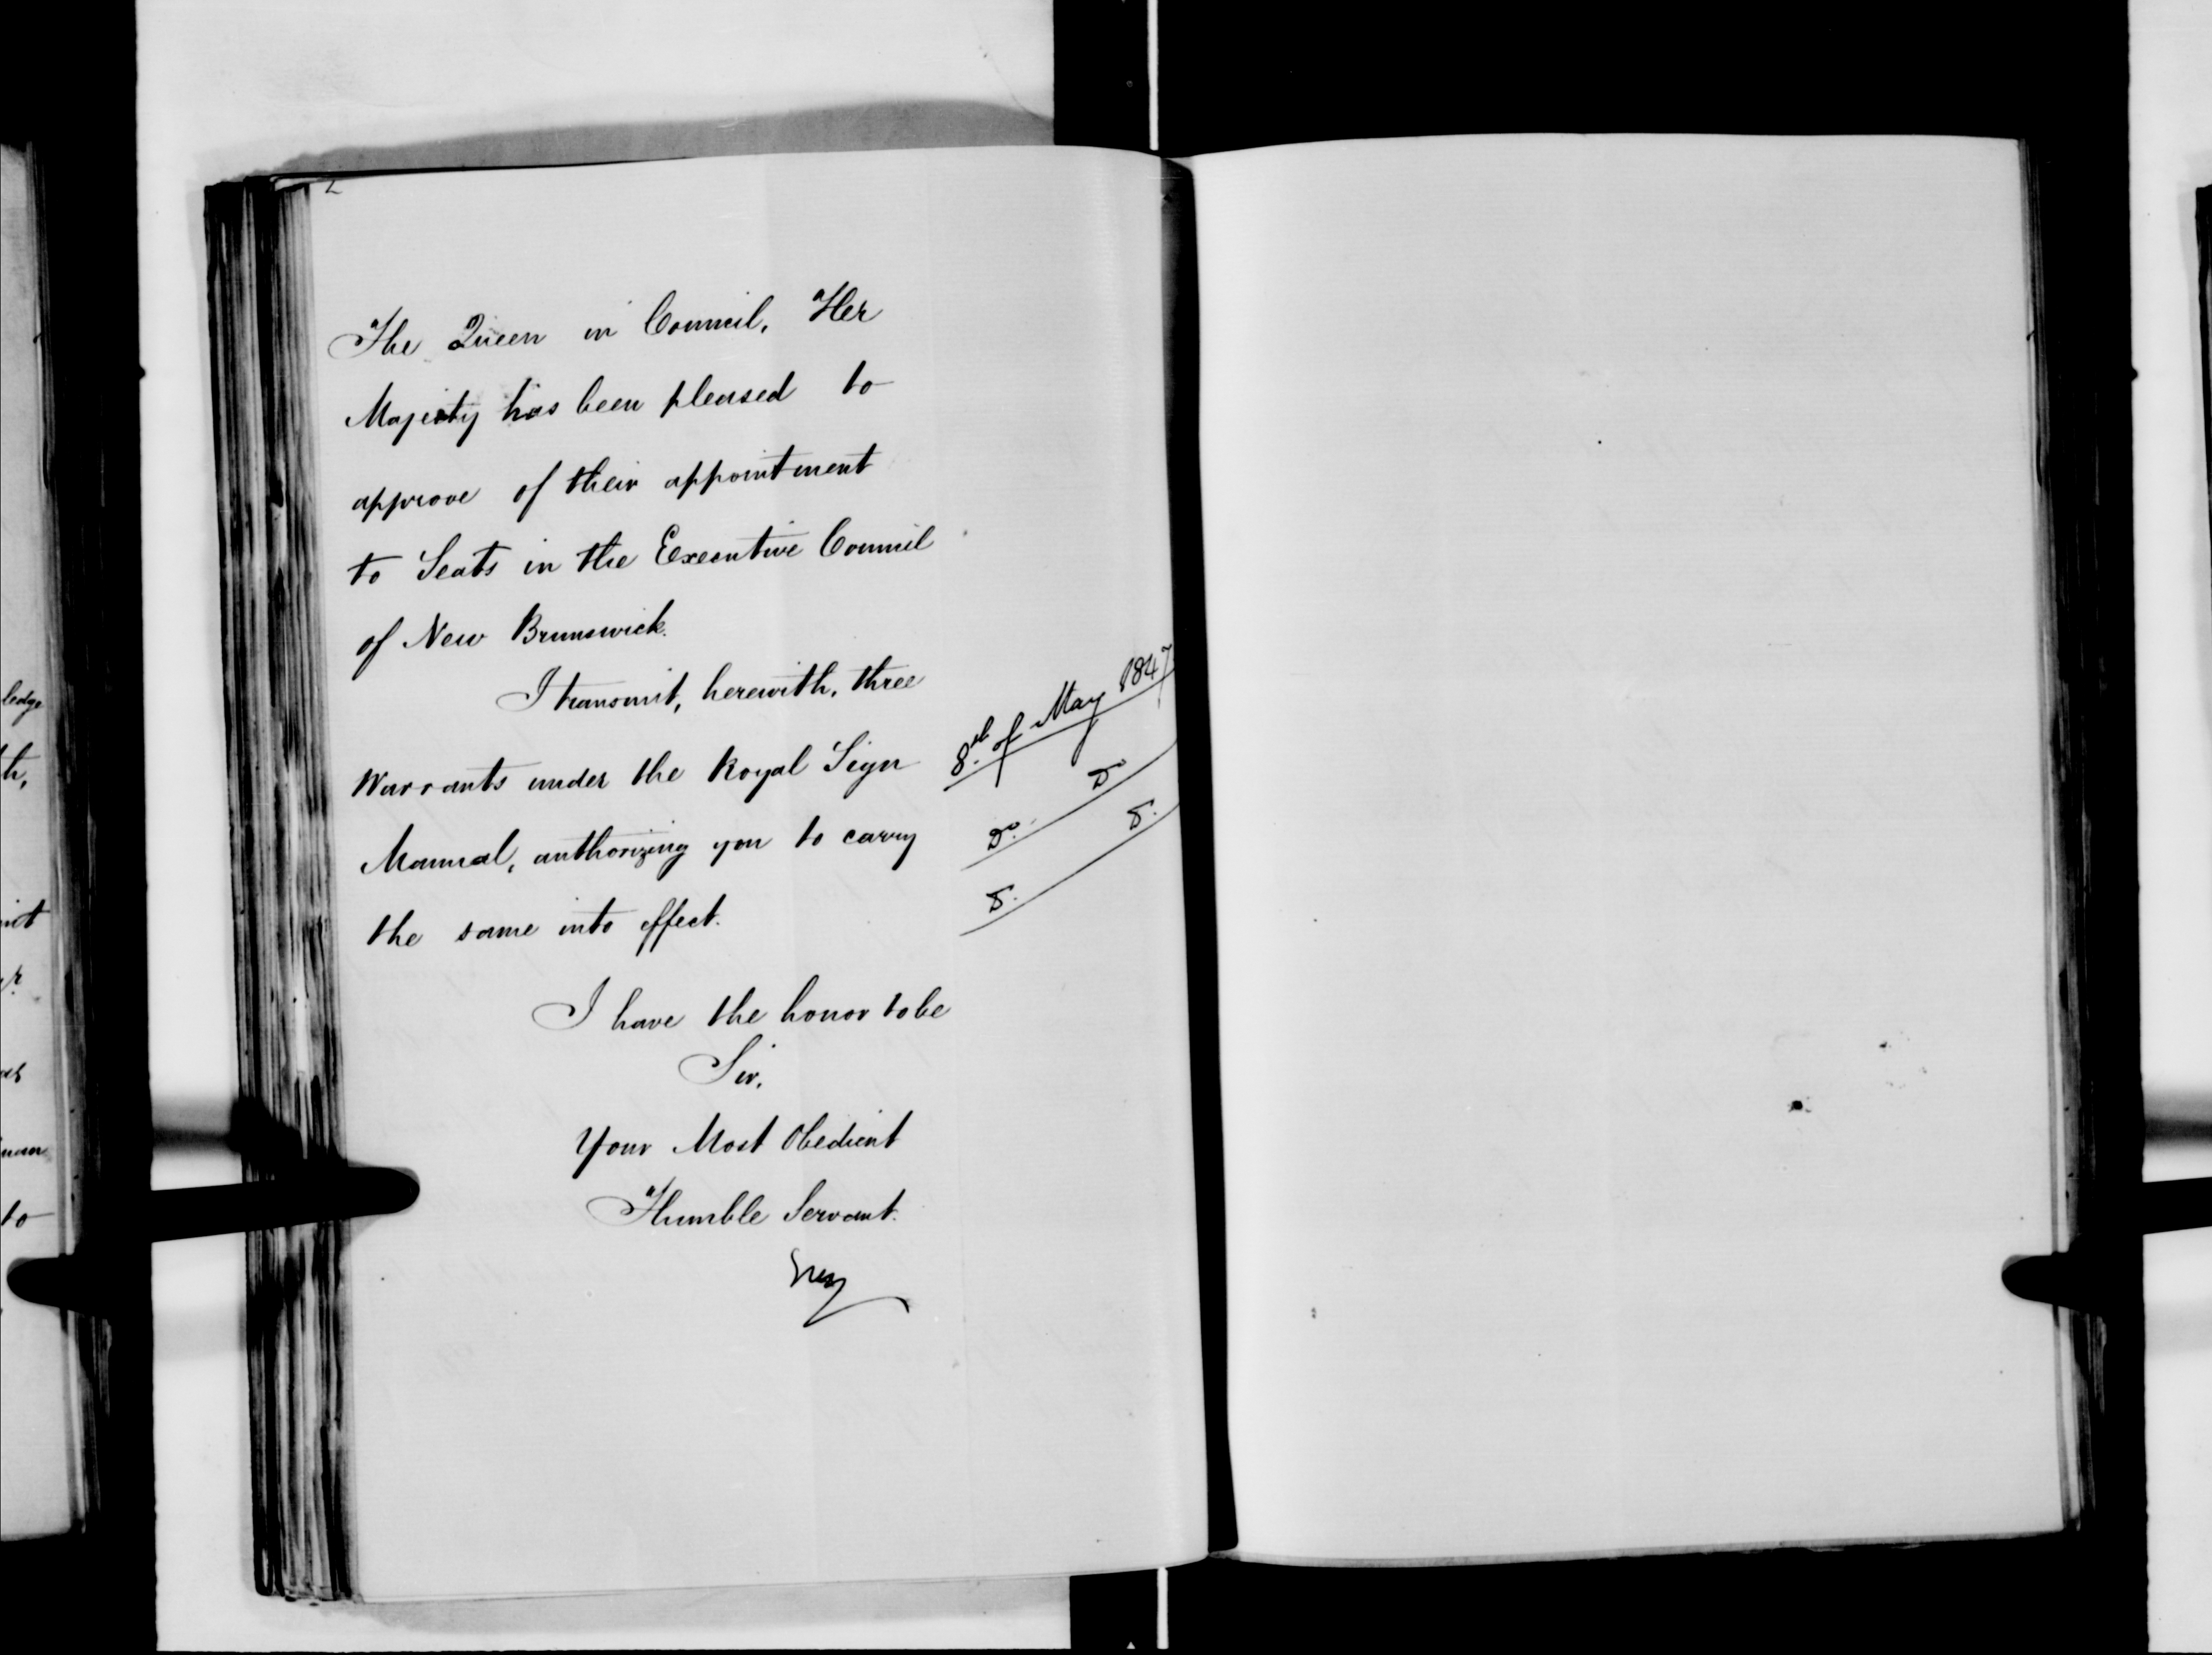 The Queen in Council, Her
Majesty has been pleased to
approve of their appointment
to Seats in the Executive Council
of New Brunswick.
I transmit, herewith, three
Warrants under the Royal Sign
Manual, authorizing you to carry
the same into effect.
8th of May 1847
Do. Do
I have the honor to be
Sir,
Your Most Obedient
Humble Servant.
Grey
ledge
th,
to